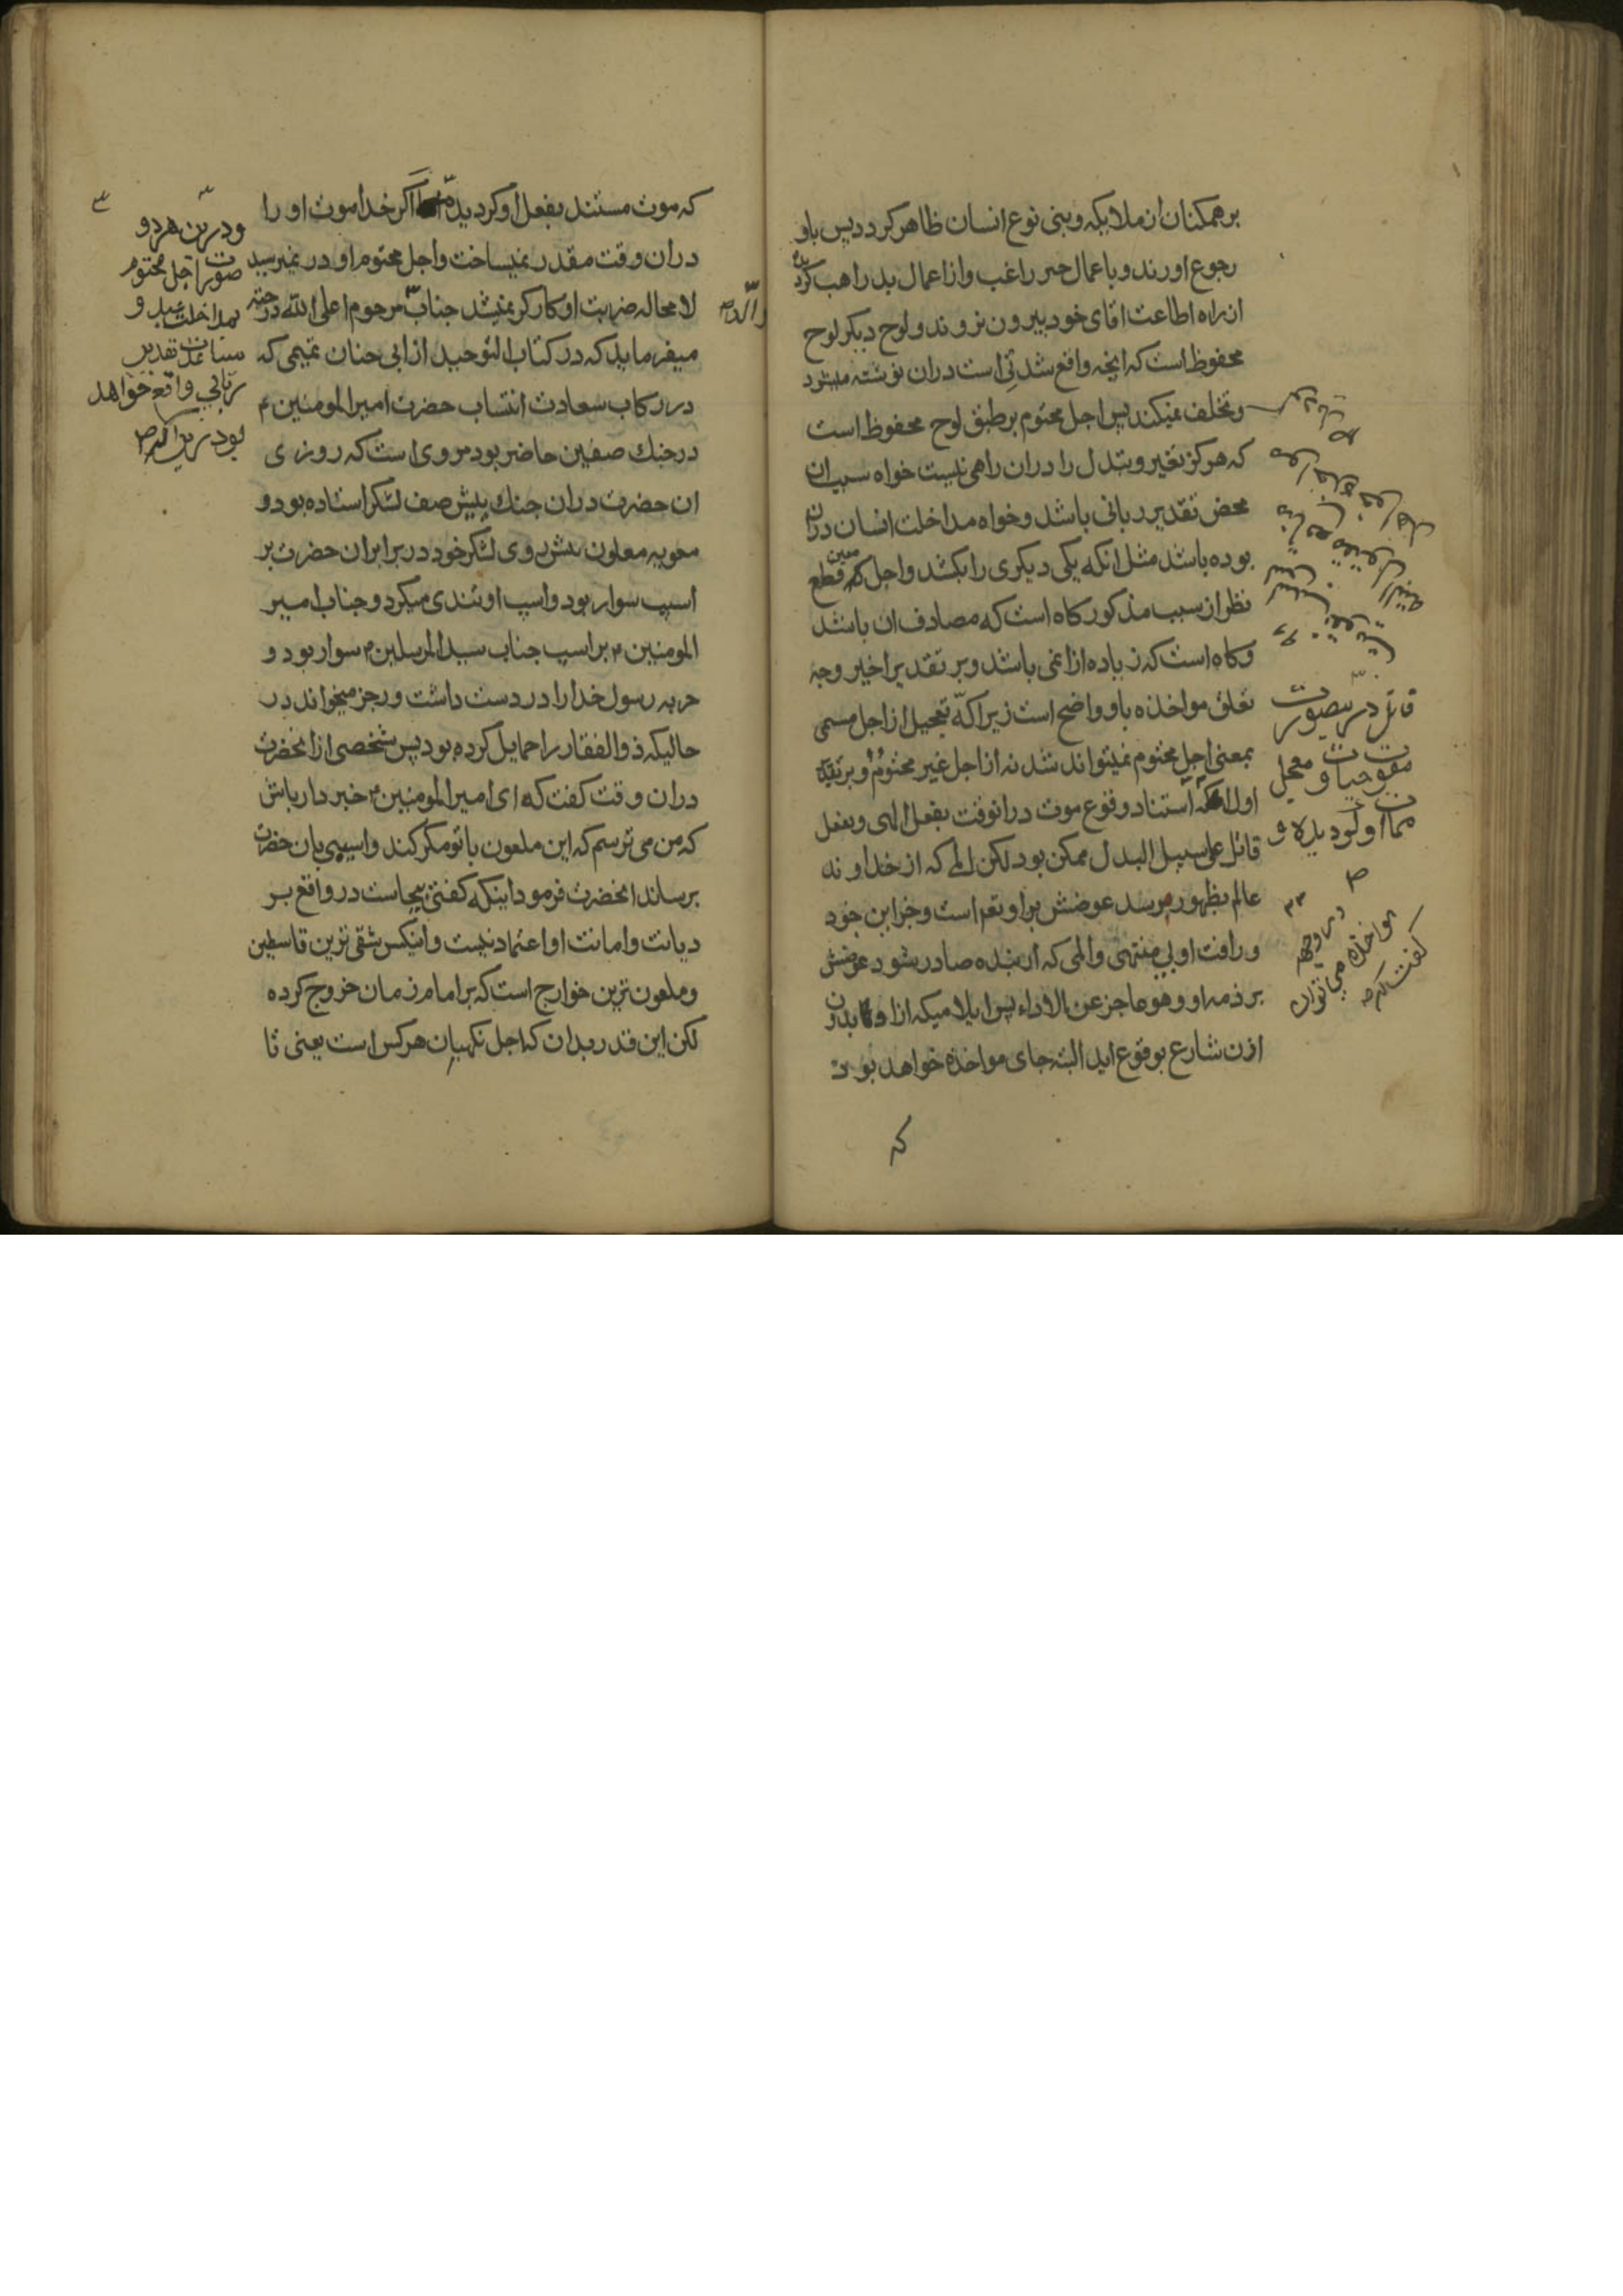 برهمکنان از ملایکه و بنی نوع انسان ظاهر کردد پس باو
رجوع اورند و باعمال خیر راغب و از اعمال بد راهب کردند
از راه اطاعت اقای خود بیرون نروند و لوح دیکر لوح
محفوظ است که انچه واقع شدنی است دران نوشته میشود
و تخلف نمیکند پس اجل محتوم بر طبق لوح محفوظ است
که هرکز تغیر و تبدل را دران راهی نیست خواه سبب ان
محض تقدیر ربانی باشد و خواه مداخلت انسان دران
بوده باشد مثل انکه یکی دیکری را بکشد و اجل معین قطع
نظر از سبب مذکور کاه است که مصادف ان باشد
و کاه است که زیاده ازانمی باشد و بر تقدیر اخیر وجه
تعلق مواخذه باو واضح است زیراکه تعجیل از اجل مسمی
بمعنی اجل محتوم نمیتواند شد نه از اجل غیر محتوم و بر تقدیر
اول استناد وقوع موت درانوقت بفعل الهی و بفعل
قاتل علی سبیل البدل ممکن بود لکن المی که از خداوند
عالم بظهور میرسد عوضش بر او تعم است و خزاین جود
و رافت او بی منتهی و المی که از بنده صادر شود عوضش
بر ذمه او و هو عاجز عن الاداء پس ایلامیکه از او بدون
اذن شارع بوقوع اید البته جای مواخذه خواهد بود
قاتل درینصورت
مفوت حیات و معجل
ممات او کردیده لا
در وجه
مواخذه می توان
کفت
که
که موت مستند بفعل او کردیده اکر خدا موت او را
دران وقت مقدر نمیساخت و اجل محتوم او در نمیرسید
لا محاله ضربت او کارکر نمیشد جناب مرحوم اعلی الله درجته
والد
میفرماید که در کتاب التوحید از ابی حنان تمیمی که
در رکاب سعادت انتساب حضرت امیر المومنین م
در جنك صفین حاضر بود مروی است که روزی
ان حضرت دران جنك پیش صف لشکر استاده بود و
معویه معاون بش روی لشکر خود در برابر ان حضرت بر
اسپ سوار بود و اسپ او تندی میکرد و جناب امیر
المومنین م بر اسپ جناب سید المرسلین م سوار بود و
حربه رسول خدا را در دست داشت و رجز میخواند در
حالیکه ذو الفقار را حمایل کرده بود پس شخصی از انحضرت
دران وقت کفت که ای امیر المومنین م خبردار باش
که من می ترسم که این ملعون با تو مکر کند و اسیبی بان حضرت
برساند انحضرت فرمود اینکه کفتی بجاست در واقع بر
دیانت و امانت او اعتماد نیست و اینکس شقی ترین قاسطین
و ملعون ترین خوارج است که بر امام زمان خروج کرده
لکن این قدر بدان که اجل نکهبان هرکس است یعنی تا
و درین هر دو
صورت اجل محتوم
بمداخلت عبد و
مساعدت تقدیر
ربانی واقع خواهد
بود